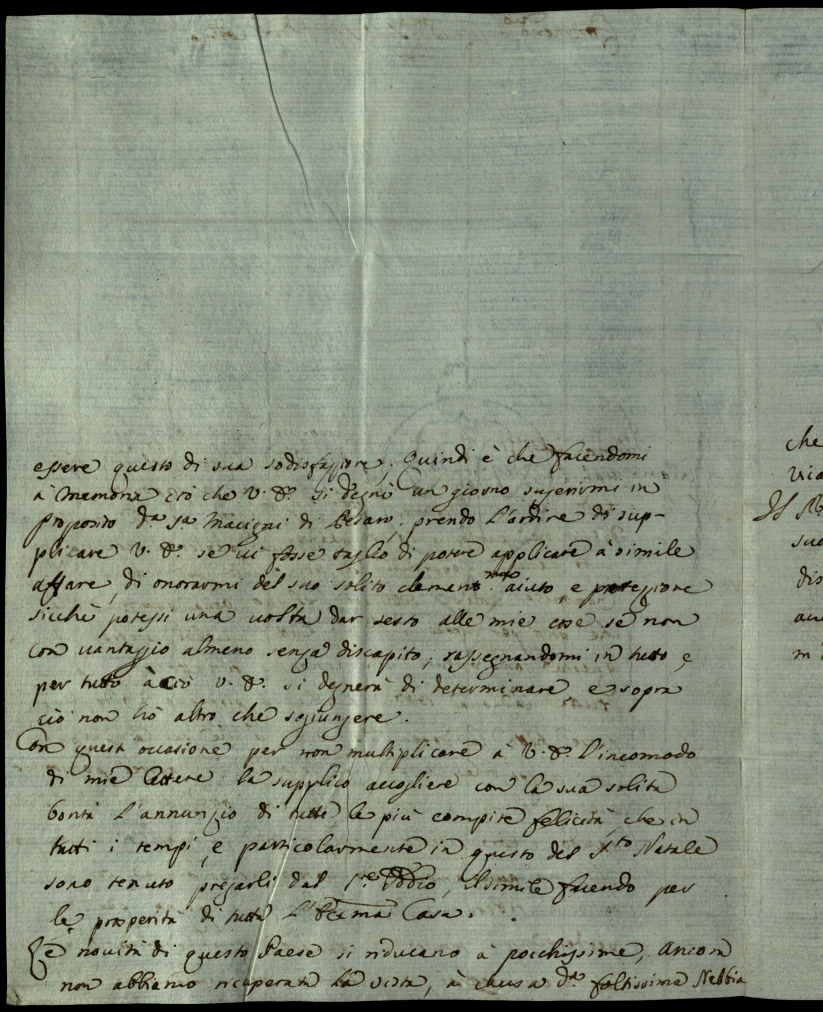 essere questo di sua sodisfazzione. Quindi è che facendomi
à memoria ciò che V. E. si degnò un giorno sugerirmi in
proposito da Sa. Macigni di Pesaro, prendo l'ardire di sup-
plicare V. E. se vi fosse taglio di potere applicare à simile
affare, di onorarmi del suo solito clementmo. aiuto, e protezzione
sicchè potessi una volta dar sesto alle mie cose se non
con vantaggio almeno senza discapito; rassegnandomi in tutto e
per tutto à ciò V. E. si degnerà di determinare, e sopra
ciò non hò altro che sogiungere.
Con questa occasione per non multiplicare à V. E. l'incomodo
di mie lettere la supplico accogliere con la sua solita
bontà l'annunzio di tutte le più compite felicità, che in
tutti i tempi, e particolarmente in questo del Sto. Natale
sono tenuto pregarli dal Sre. Iddio, il simile facendo per
le prosperità di tutta l'Ecma. Casa.
Le novità di questo Paese si riducano à pocchissime, ancora
non abbiamo ricuperata la vista, à causa da. foltissima Nebbia
che
sua
dis
m